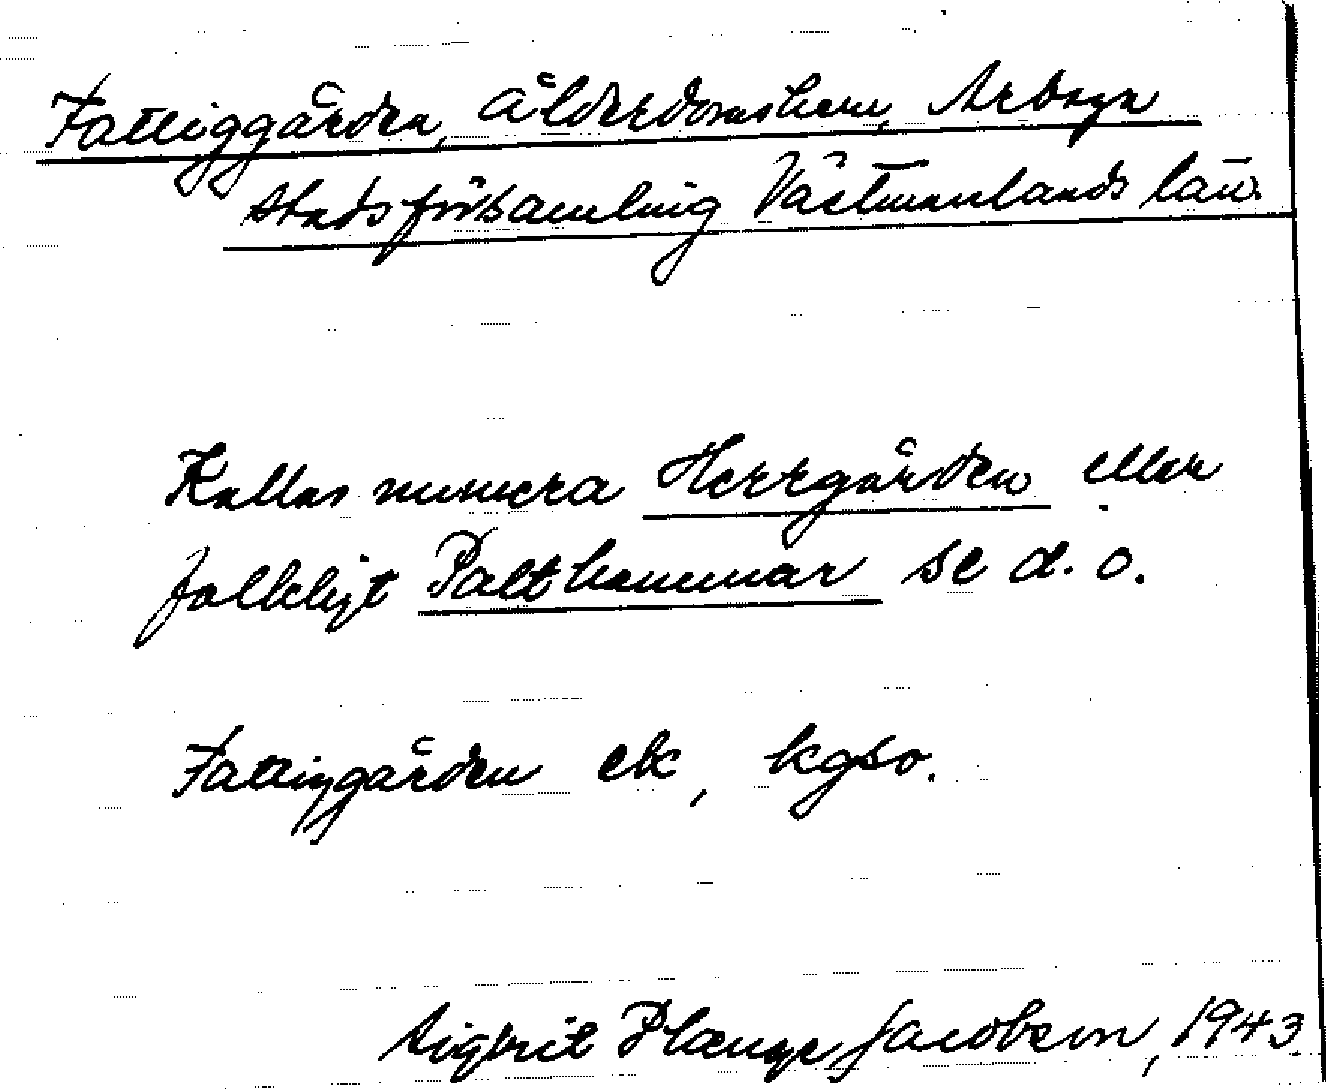 Fattiggården, Ålderdomshem, Arboga
Stadsförsamling Västmanlands län.
Kallas numera Herrgården eller
folkligt Palthammar se d. o.
Fattiggården ek, kgso.
Sigbrit Plænge Jacobson, 1943.